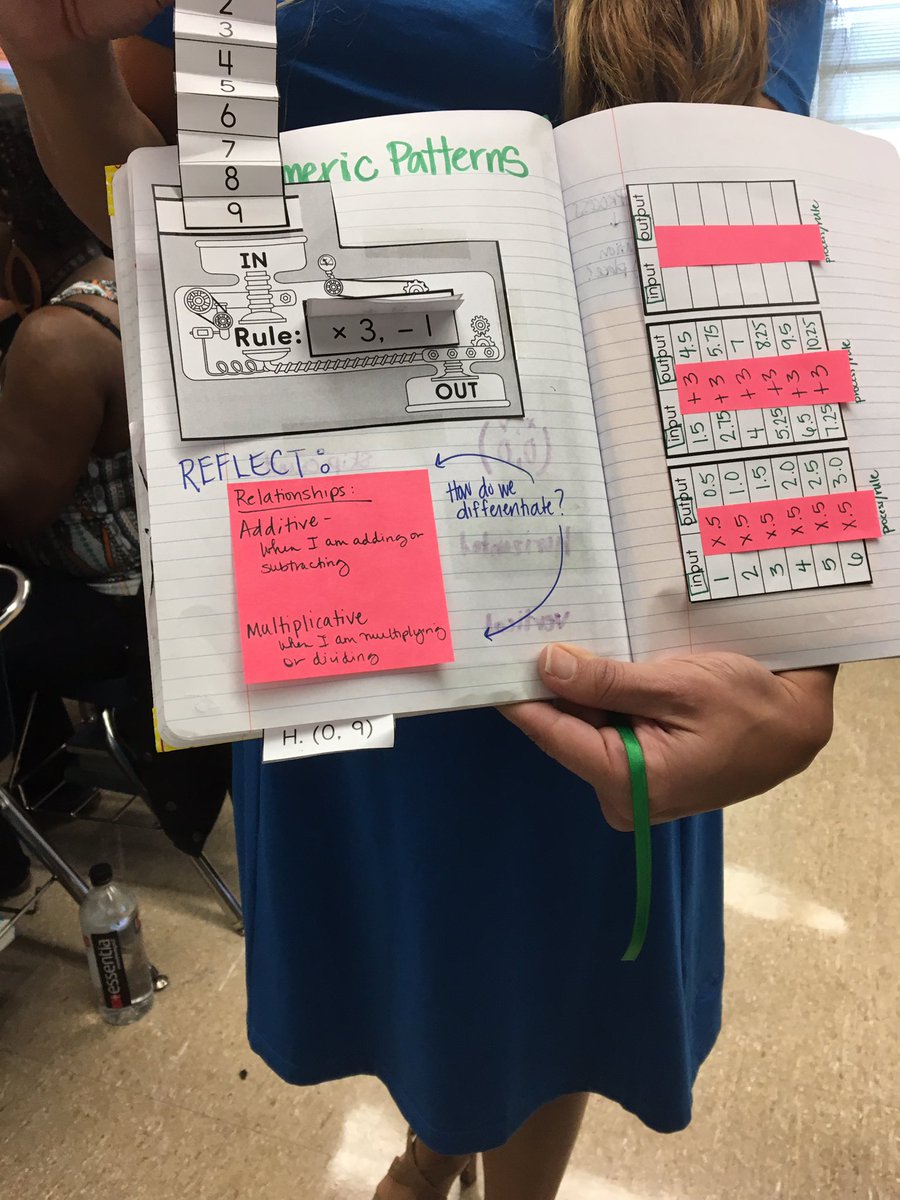 2
3
4
5
6
7
8
9
meric Patterns
IN
Rule:
× 3, − 1
OUT
REFLECT:
Relationships:
Additive -
when I am adding or
subtracting
Multiplicative
when I am multiplying
or dividing
How do we
differentiate?
H. (0, 9)
input output
process/rule
input output
1.5 +3 4.5
2.75 +3 5.75
4 +3 7
5.25 +3 8.25
6.5 +3 9.5
7.25 +3 10.25
process/rule
input output
1 x.5 0.5
2 x.5 1.0
3 x.5 1.5
4 x.5 2.0
5 x.5 2.5
6 x.5 3.0
process/rule
essentia